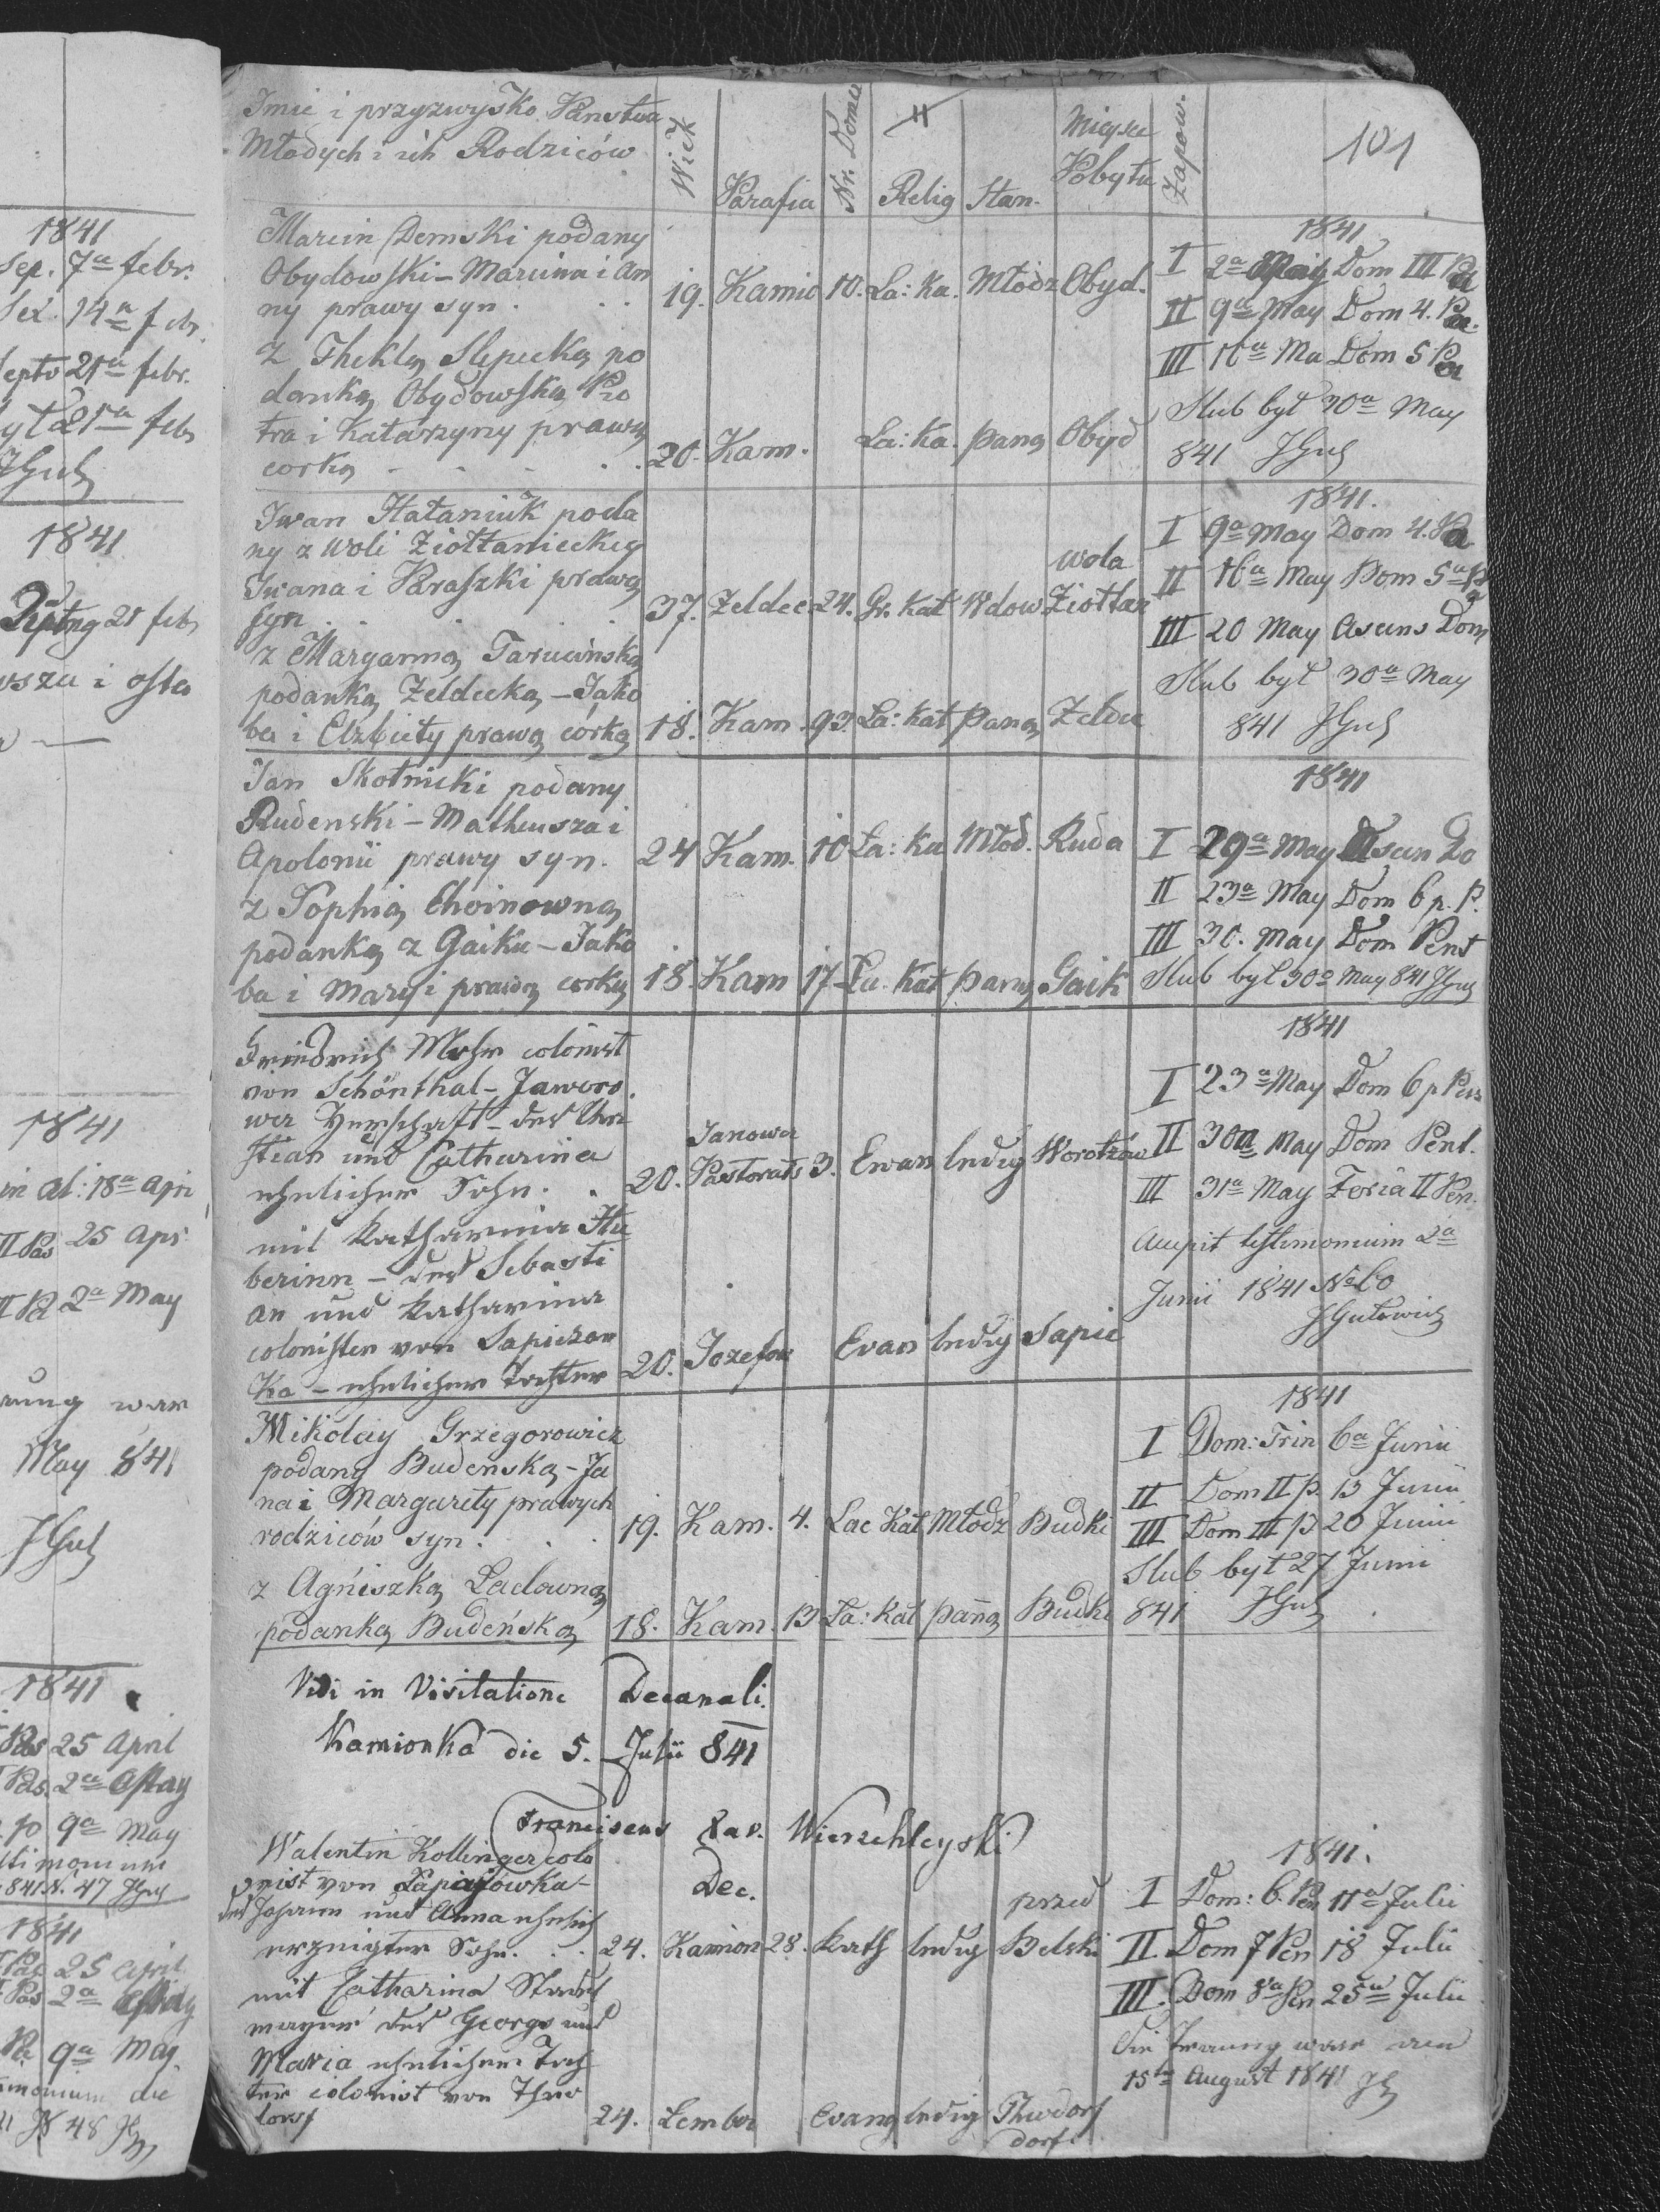 1841
Sep. 7a febr.
Sex. 14a feb.
21a febr.
21a feb
JGut
1841
21 feb
1841
18a Apri
II Pas 25 Apr
2a May
war
May 841
JGut
1841
Pas 25 April
Pas. 2a May
9a May
841 N. 47 JGut
1841
Pas 25 April
Pas 2a May
9a May
die
N 48
Imie i przyzwysko Panstwa
Młodych i ich Rodziców
Wiek
Parafia
Nr. Domu
Relig
Stan.
Miejsce
Pobytu
Zapow.
101
Marcin Demski podany
Obydowski – Marcina i An
ny prawy syn . . .
19. Kamio 10. La: Ka. Młodz Obyd.
z Theklą Slepecką po
danką Obydowską Pio
tra i Katarzyny prawą
corką . . . . .
20. Kam. La: Ka. paną Obyd
1841
I 2a May Dom III Pa
II 9a May Dom 4. Pa.
III 16a Ma Dom 5 Pa
Slub był 30a May
841 JGut
Iwan Hataniuk poda
ny z Woli Ziołtanieckiey
Iwana i Paraszki prawą
syn . . . .
37. Zeldec 24. Gr. Kat Wdow wola Ziołtan
z Maryanną Tarucińską
podanką Zeldecką – Jako
ba i Elzbiety prawą córką
18. Kam. 93. La: Kat paną Zeldec
1841.
I 9a May Dom 4. Pa
II 16a May Dom 5a Pa
III 20 May Ascens Dom
Slub był 30a May
841 JGut
Jan Skotnicki podany
Rudenski – Matheusza i
Apolonii prawy syn.
24 Kam. 10 La: Ka Młod. Ruda
z Sophią Choinowną
podanką z Gaiku – Jako
ba i Maryi prawą corką
18. Kam 17 La. Kat panną Gaik
1841
I 20a May Ascen Do
II 23a May Dom 6 p. P.
III 30. May Dom Pent
Slub był 30a May 841 JGut
Friedrich Mohr colonist
von Schönthal – Jaworo
wer Herschaft – des Chri
stian und Catharina
ehelicher Sohn . .
20. Janowa Pastorats 3. Evan ledig Worotzow
mit Katharina Hu
berinn – des Sebasti
an und Katharina
colonisten von Sapiezan
ka – ehelicher Tochter
20. Jozefow Evan ledig Sapie
1841
I 23a May Dom 6 p Pas
II 30a May Dom Pent.
III 31a May Feria II Pen.
Accepit testimonium 2a
Junii 1841 No 60
JGutowicz
Mikołay Grzegorowicz
podany Budenską – Ja
na i Margarety prawych
rodziców syn . . .
19. Kam. 4. Lac Kat Młodz Budki
z Agniszką Laclowną
podanką Budeńską
18. Kam. 13 La: Kat panną Budki
1841
I Dom: Trin 6a Junii
II Dom II p. 13 Junii
III Dom III p 20 Junii
Slub był 27 Junii
841 JGut
Vidi in Visitatione Decanali
Kamionka die 5. Julii 841
Franciscus Xav. Wierzchleyski
Dec.
Walentin Kollinger colo
nist von Sapiezowka –
des Johann und Anna ehelich
erzeigter Sohn . . .
24. Kamion 28. Kath ledig przed Belski
mit Catharina Stadel
mayer des Georgs und
Maria ehelichen Toch
ter colonist von Theo
dorf
24. Lember Evang ledig Theodorf
dorf
1841.
I Dom: 6. Pen 11a Julii
II Dom 7 Pen 18 Julii
III. Dom 8a Pen 25a Julii
Die Trauung war den
15ten August 1841 JG